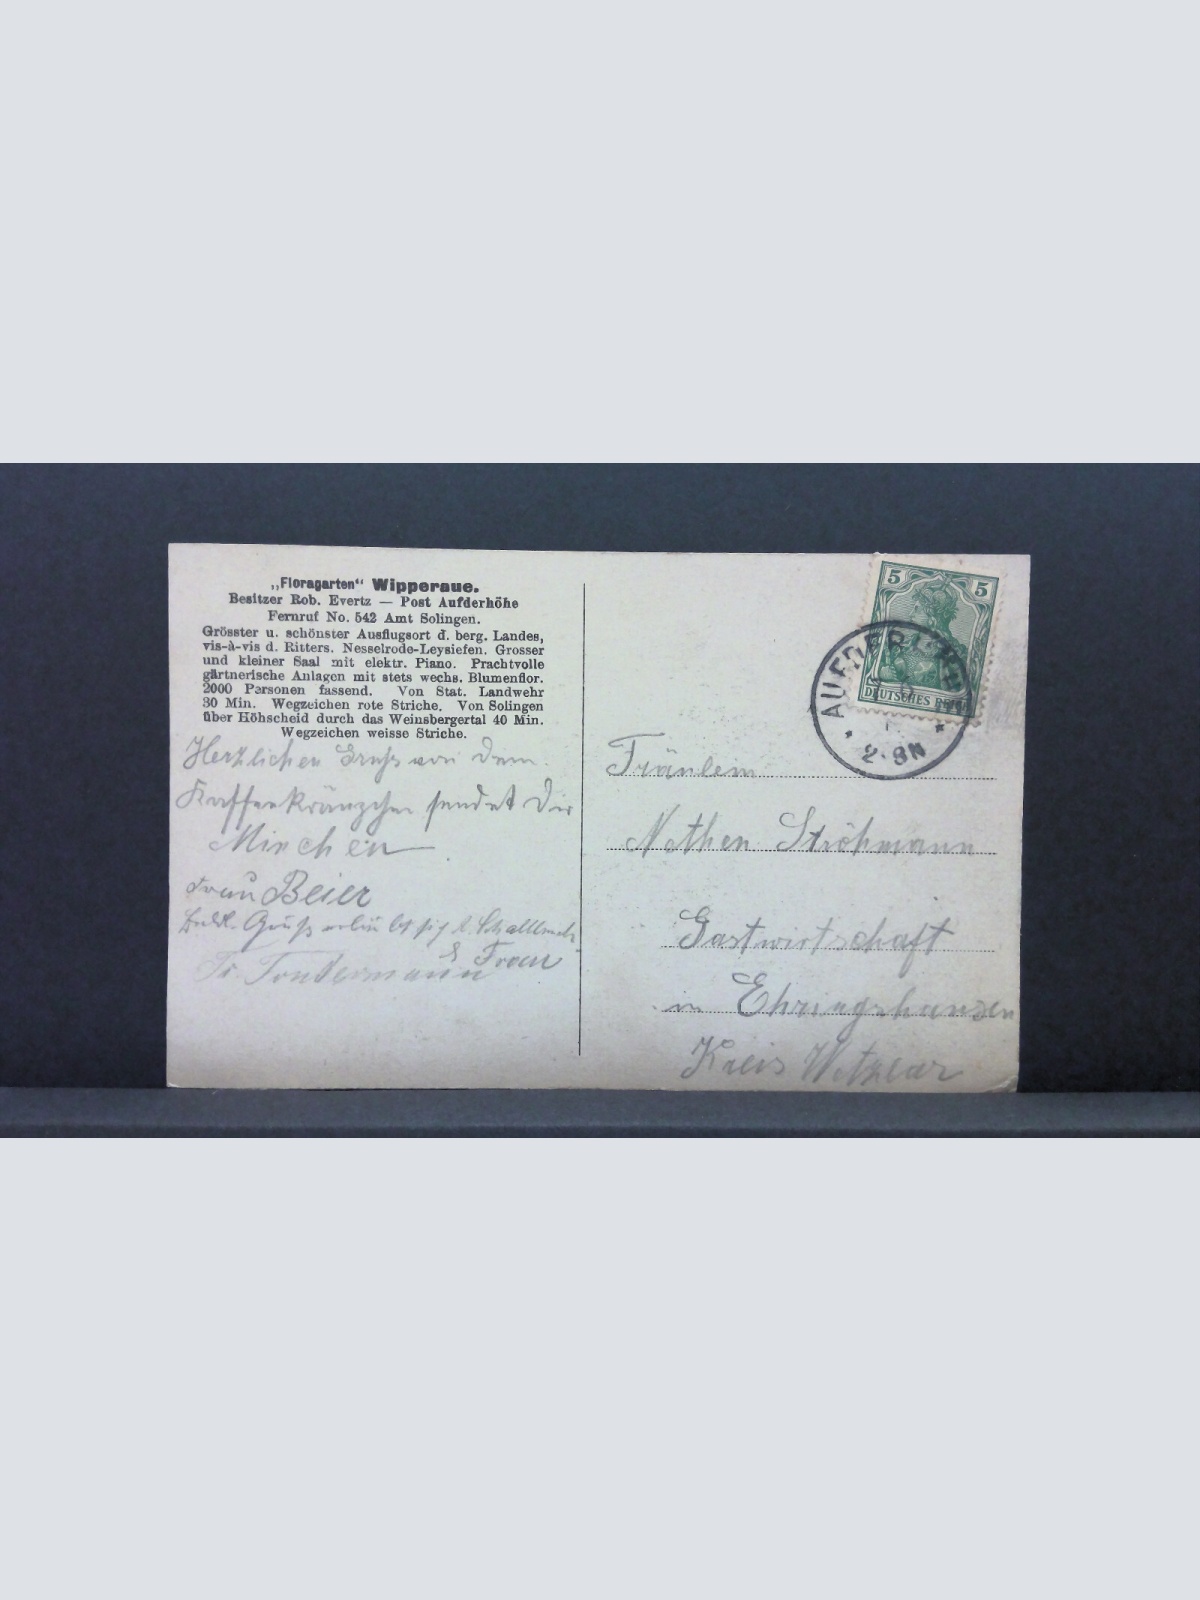 „Floragarten“ Wipperaue.
Besitzer Rob. Evertz — Post Aufderhöhe
Fernruf No. 542 Amt Solingen.
Grösster u. schönster Ausflugsort d. berg. Landes,
vis-à-vis d. Ritters. Nesselrode-Leysiefen. Grosser
und kleiner Saal mit elektr. Piano. Prachtvolle
gärtnerische Anlagen mit stets wechs. Blumenflor.
2000 Personen fassend. Von Stat. Landwehr
30 Min. Wegzeichen rote Striche. Von Solingen
über Höhscheid durch das Weinsbergertal 40 Min.
Wegzeichen weisse Striche.
Herzlichen Gruß von dem
Kaffeekränzchen sendet Dir
Minchen
Frau Beier
Gruß
Frau
Fr. Tondermann
5 5
DEUTSCHES REICH
AUFDERHÖHE
2-8N
Fräulein
Ströhmann
Gastwirtschaft
in Ehringshausen
Kreis Wetzlar